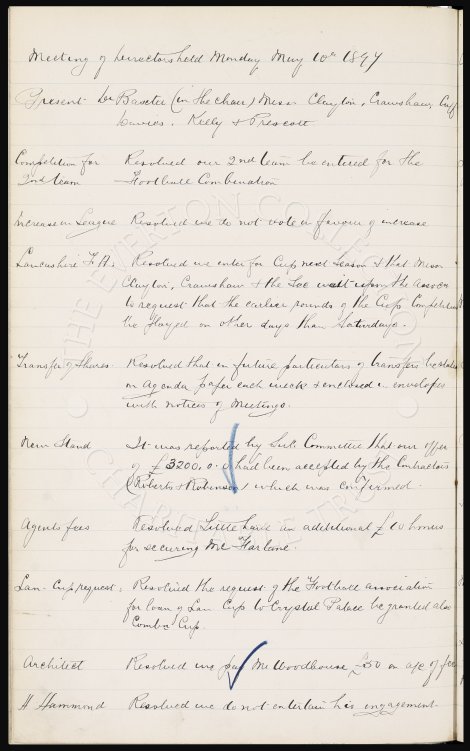 Meeting of Directors held Monday May 10th 1897
Present Dr Baxter (in the chair) Messrs Clayton, Crawshaw, Cuff
Davies, Kelly & Prescott
Competition for Resolved our 2nd team be entered for the
2nd team Football Combination
Increase in League Resolved we do not vote in favour of increase
Lancashire F.A. Resolved we enter for Cup next Season & that Messrs
Clayton, Crawshaw & the Sec wait upon the assocn
to request that the earlier rounds of the Cup Competition
be played on other days than Saturdays.
Transfer of Shares Resolved that in future particulars of transfers be stated
on Agenda paper each week & enclosed in envelopes
with notices of Meetings.
New Stand It was reported by Sub. Committee that our offer
of £3200.0.0 had been accepted by the Contractors
(Roberts & Robinson) which was confirmed.
Agents fees Resolved Little have an additional £10 bonus
for securing McFarlane.
Lan. Cup request: Resolved the request of the Football association
for loan of Lan Cup to Crystal Palace be granted also
Comb. Cup.
Architect Resolved we pay Mr Woodhouse £50 on a/c of fees
H Hammond Resolved we do not entertain his engagement.
THE EVERTON COLLECTION
CHARITABLE TRUST